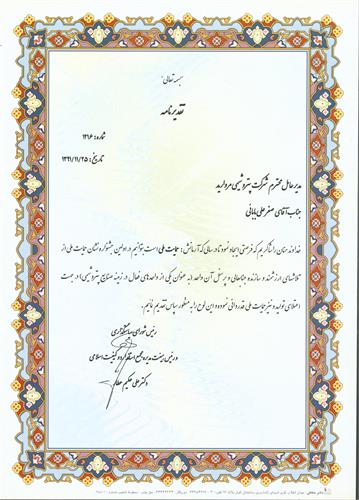 بسمه تعالی
تقدیرنامه
شماره: ۱۲۹۶
تاریخ: ۱۳۹۱/۱۱/۲۵
مدیرعامل محترم شرکت پتروشیمی مروارید
جناب آقای صفرعلی بابائی
خداوند منان را شاکریم که فرصتی ایجاد نمود تا در سالی که آرمانش: حمایت ملی است بتوانیم در اولین جشنواره نشان حمایت ملی از
تلاشهای ارزشمند و سازنده و جنابعالی و پرسنل آن واحد (به عنوان یکی از واحدهای فعال در زمینه صنایع پتروشیمی) در جهت
اعتلای تولید و نیز حمایت ملی قدردانی نموده و این لوح را به منظور سپاس تقدیم نمائیم.
رئیس شورای سیاستگذاری
و رئیس هیئت مدیره مجمع استقرار کیفیت اسلامی
دکتر علی حکیم